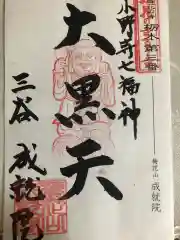 栃木第三番
小野寺七福神
大黒天
梅花山 成就院
三谷 成就院